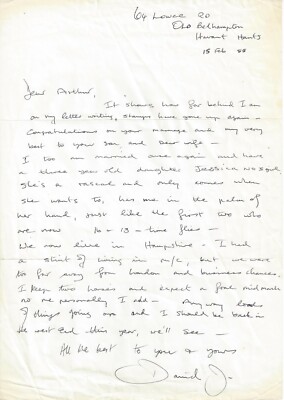 64 Lower Rd
Old Bedhampton
Havant Hants
15 Feb 88
Dear Arthur,
It shows how far behind I am
on my letter writing, stamps have gone up again -
Congratulations on your marriage and my very
best to your son, and dear wife -
I too am married once again and have
a three year old daughter JESSICA
she's a rascal and only comes when
she wants to, has me in the palm of
her hand, just like the first two who
are now 16 + 13 - time flies -
We now live in Hampshire - I had
a stint of living in m/c, but we were
too far away from London and business chances.
I keep two horses and expect a foal mid march
no me personally I add - Anyway loads
of things going on and I should be back in
the west End this year, we'll see -
All the best to you & yours
David J.